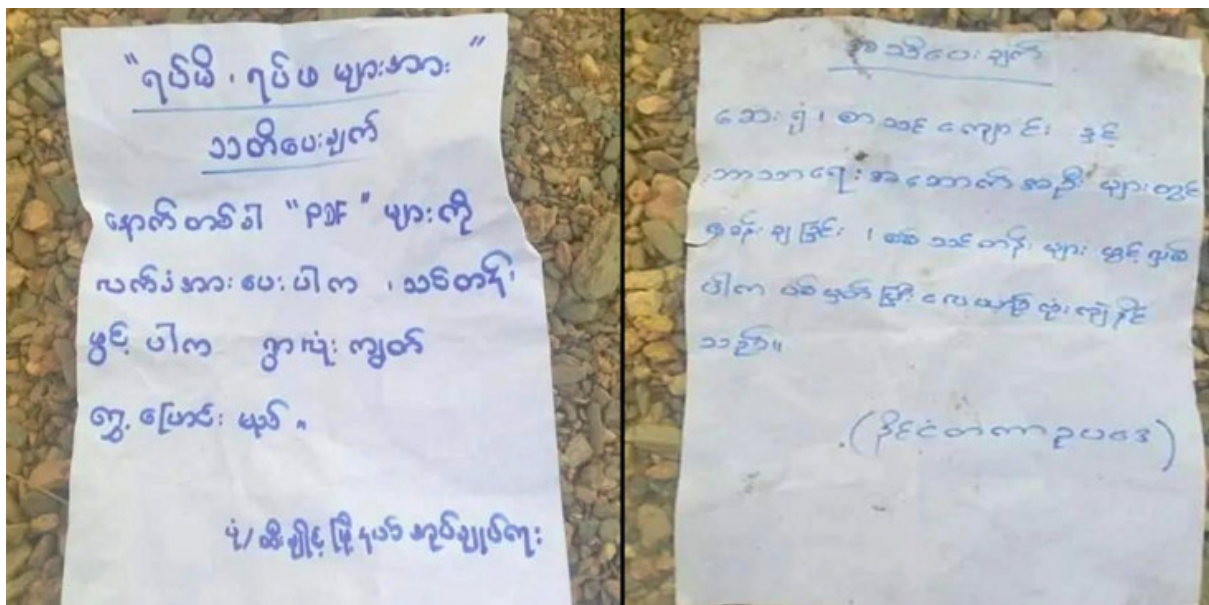 "ရပ်မိ၊ ရပ်ဖ များအား"
သတိပေးချက်
နောက်တစ်ခါ "PDF" များကို
လက်ခံအားပေးပါက ၊ သင်တန်း
ဖွင့်ပါက ရွာလုံးကျွတ်
ရွှေ့ပြောင်းမည်။
ပုံ/ဆီးချိုင့်မြို့နယ်အုပ်ချုပ်ရေး
အသိပေးချက်
ဆေးရုံ၊ စာသင်ကျောင်း နှင့်
ဘာသာရေးအဆောက်အဦး များတွင်
စခန်းချခြင်း ၊ စစ်သင်တန်း များ ဖွင့်လှစ်
ပါက ပစ်မှတ်ပြု လေယာဉ်ဗုံးကျဲနိုင်
သည်။
(နိုင်ငံတကာဥပဒေ)